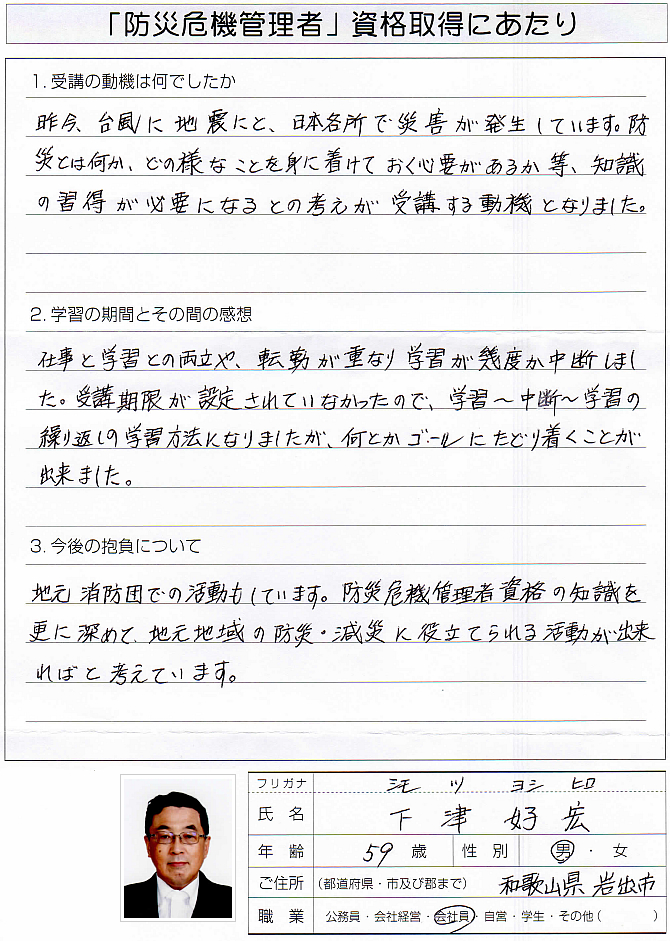 「防災危機管理者」資格取得にあたり
1. 受講の動機は何でしたか
昨今、台風に地震にと、日本各所で災害が発生しています。防
災とは何か、どの様なことを身に着けておく必要があるか等、知識
の習得が必要になるとの考えが受講する動機となりました。
2. 学習の期間とその間の感想
仕事と学習との両立や、転勤が重なり学習が幾度か中断しまし
た。受講期限が設定されていなかったので、学習～中断～学習の
繰り返しの学習方法になりましたが、何とかゴールにたどり着くことが
出来ました。
3. 今後の抱負について
地元消防団での活動もしています。防災危機管理者資格の知識を
更に深めて、地元地域の防災・減災に役立てられる活動が出来
ればと考えています。
フリガナ シモ ツ ヨシ ヒロ
氏名 下津 好宏
年齢 59 歳 性別 男・女
ご住所 (都道府県・市及び郡まで) 和歌山県 岩出市
職業 公務員・会社経営・会社員・自営・学生・その他( )